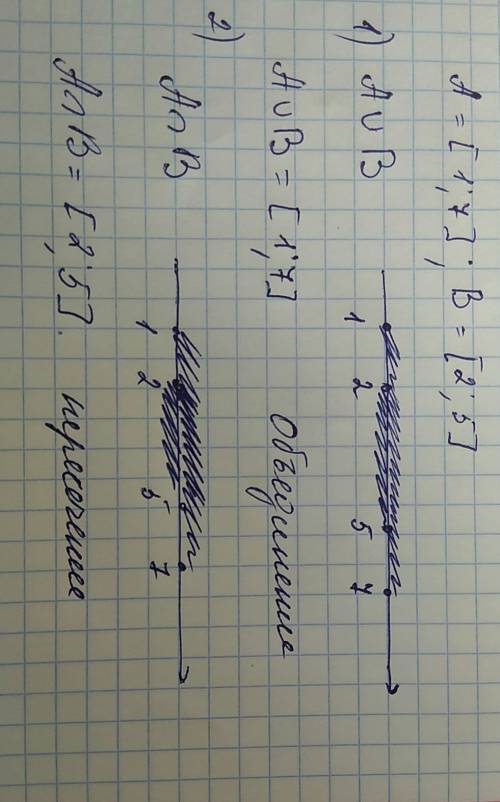 A = [1; 7]; B = [2; 5]
1) A ∪ B
1 2 5 7
A ∪ B = [1; 7] Объединение
2) A ∩ B
1 2 5 7
A ∩ B = [2; 5]. пересечение